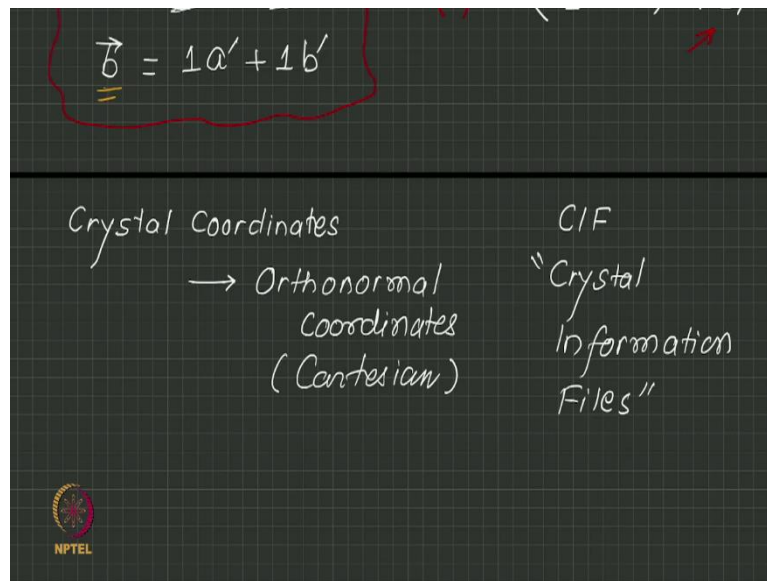 b⃗ = 1a′ + 1b′
Crystal Coordinates
→ Orthonormal
Coordinates
(Cartesian)
CIF
"Crystal
Information
Files"
NPTEL